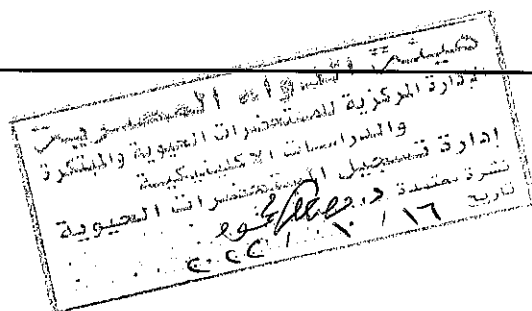 هيئة الدواء المصرية
الإدارة المركزية للمستحضرات الحيوية والمبتكرة
والدراسات الاكلينيكية
إدارة تسجيل المستحضرات الحيوية
نشرة معتمدة د.
تاريخ ١٦ / ١٠ /